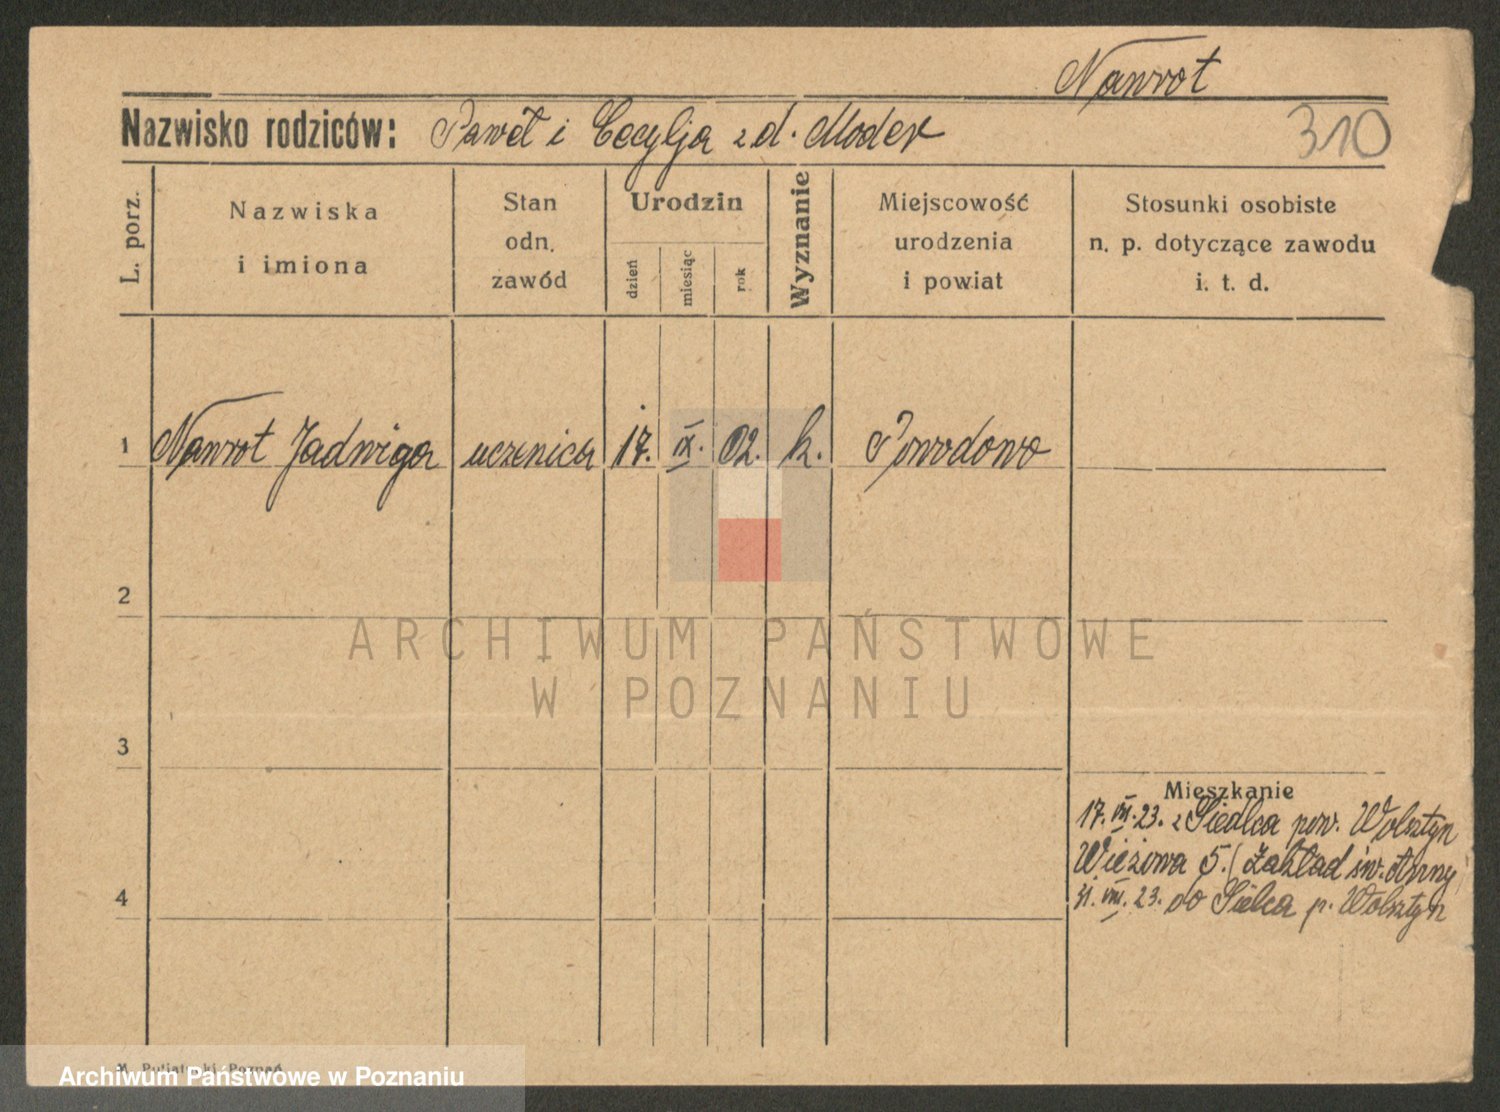 Nawrot
Nazwisko rodziców: Paweł i Cecylja z d. Moder
310
L. porz.
Nazwiska
i imiona
Stan
odn.
zawód
Urodzin
dzień
miesiąc
rok
Wyznanie
Miejscowość
urodzenia
i powiat
Stosunki osobiste
n. p. dotyczące zawodu
i. t. d.
1 Nawrot Jadwiga uczenica 17. IX. 02. k. Powodowo
2
3
4
Mieszkanie
17. VII. 23. z Siedlca pow. Wolsztyn
Wieżowa 5. (Zakład św. Anny)
31. VIII. 23. do Sielca p. Wolsztyn
ARCHIWUM PAŃSTWOWE
W POZNANIU
Poznań
Archiwum Państwowe w Poznaniu